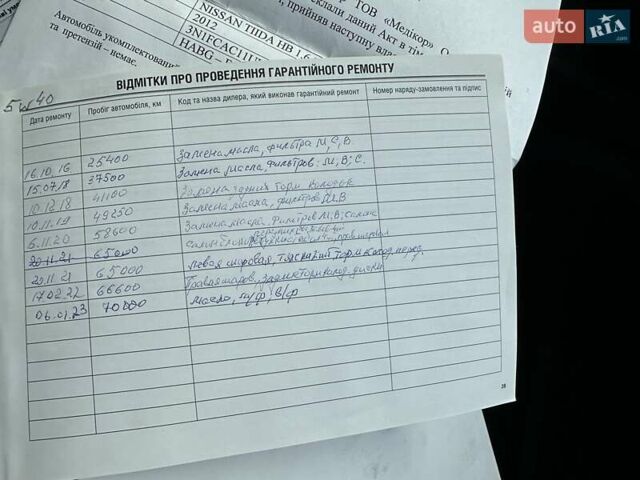 ТОВ «Медікор»
склали даний Акт в тім
прийняв наступну
NISSAN TIIDA HB 1.6
2012
3N1FCAC11U
HABG –
Автомобіль укомплектований
та претензій – немає.
auto RIA .com
5 40
ВІДМІТКИ ПРО ПРОВЕДЕННЯ ГАРАНТІЙНОГО РЕМОНТУ
Дата ремонту Пробіг автомобіля, км Код та назва дилера, який виконав гарантійний ремонт Номер наряду-замовлення та підпис
16.10.16 25400 Замена масла, фильтра М, С, В.
15.07.18 37500 Замена масла, фильтров: М; В; С.
10.12.18 41100 Замена задних торм. колодок
10.11.19 49250 Замена масла, фильтров М, В
6.11.20 58600 Замена масла, Фильтров М, В,
20.11.21 65000
20.11.21 65000 Левая шаровая, торм колод. перед.
17.02.22 66600 Правая шаров, зад
06.01.23 70000 Масло, м/ф, в/ф
38